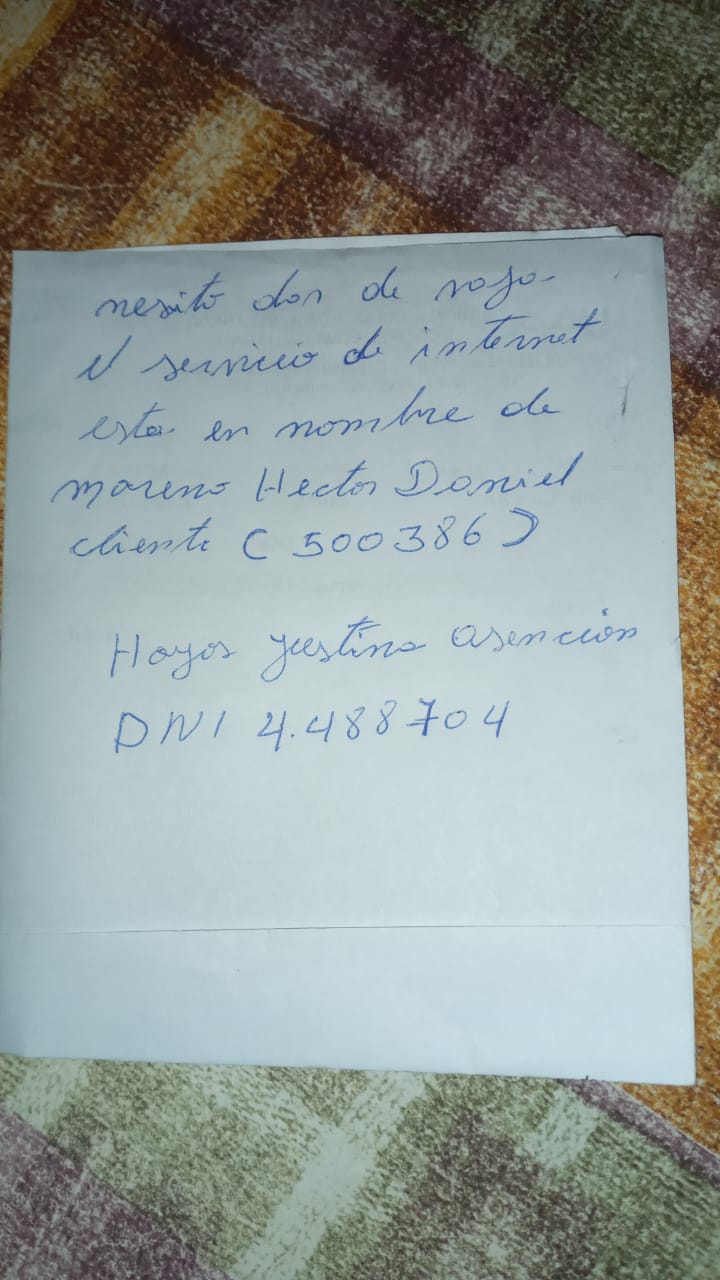 nesito dar de vaja
el servicio de internet
esta en nombre de
moreno Hector Daniel
cliente (500386)
Hoyos justina asención
DNI 4.488704